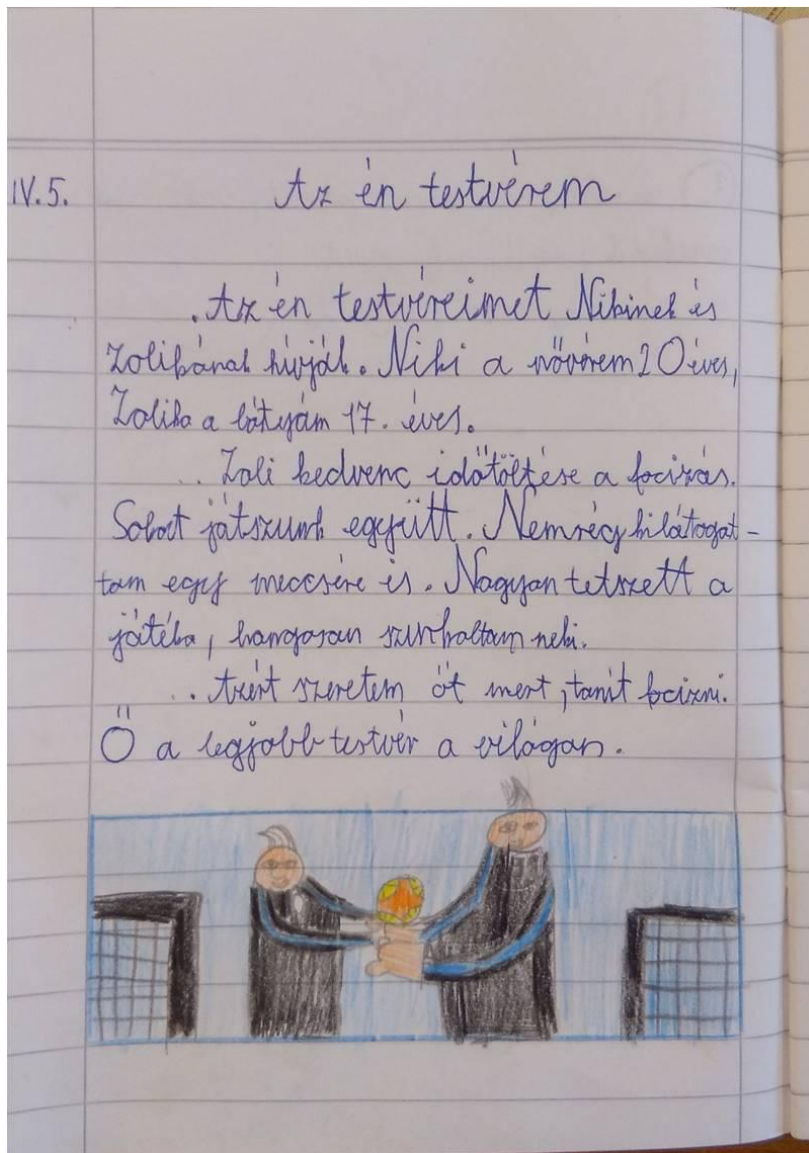 IV.5.
Az én testvérem
.Az én testvéreimet Nikinek és
Zolikának hívják. Niki a nővérem 20 éves,
Zolika a bátyám 17. éves.
.. Zoli kedvenc időtöltése a focizás.
Sokat játszunk együtt. Nemrég kilátogat-
tam egy meccsére is. Nagyon tetszett a
játéka, hangosan szurkoltam neki.
.. Azért szeretem őt mert, tanit focizni.
Ő a legjobb testvér a világon.